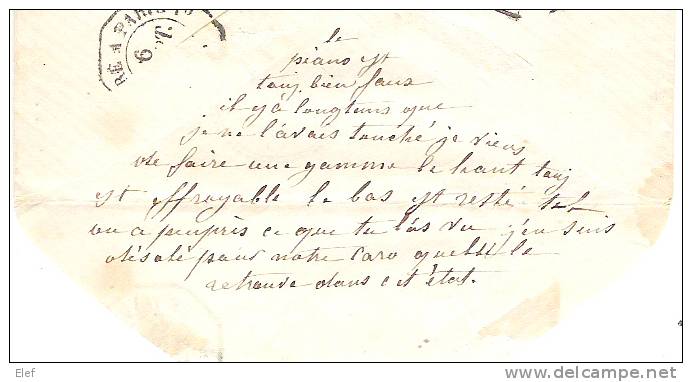 RÉ A PARIS
le
piano est
touj bien faux
il y à longtems que
je ne l'avais touché je viens
de faire une gamme le haut touj
est effroyable le bas est resté tel
ou a peuprès ce que tu l'as vu j'en suis
désolé pour notre Caro quelle le
retrouve dans cet état.
Elef
www.delcampe.net